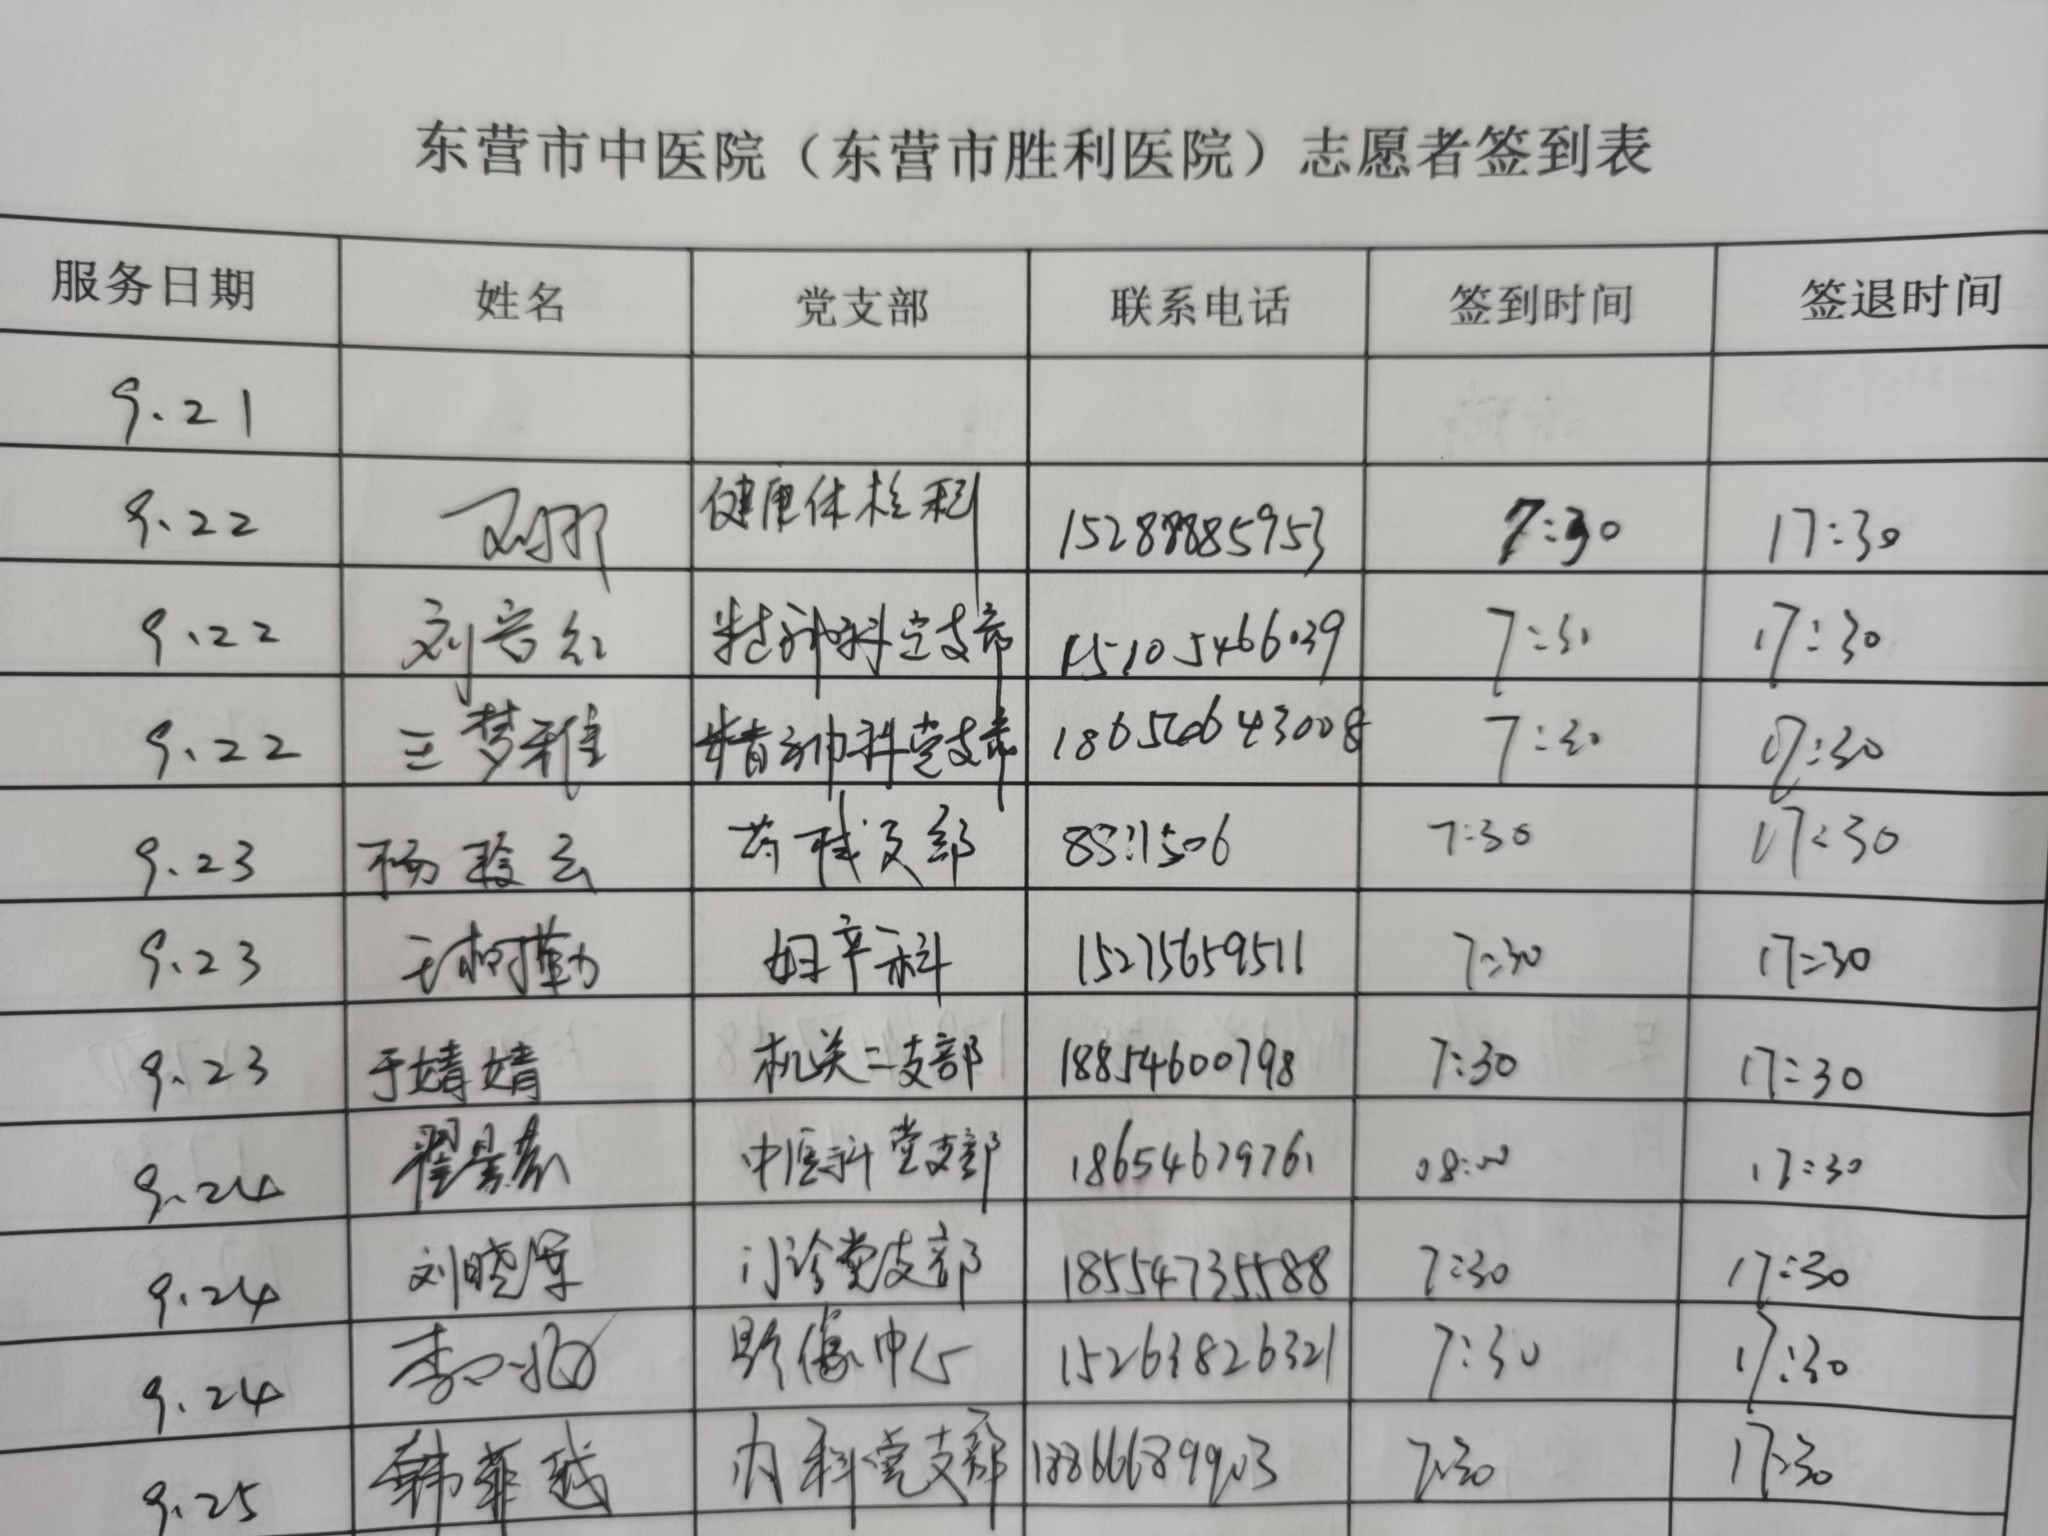 东营市中医院（东营市胜利医院）志愿者签到表
服务日期 姓名 党支部 联系电话 签到时间 签退时间
9.21
9.22 刘那 健康体检科 15288885953 7:30 17:30
9.22 刘 科党支部 15105466039 7:30 17:30
9.22 王梦雅 精神科党支部 7:30 17:30
9.23 杨 云 药械支部 7:30 17:30
9.23 王树勤 妇产科 15275659511 7:30 17:30
9.23 于婧婧 机关二支部 18854600798 7:30 17:30
9.24 翟 中医科党支部 18654679761 08:00 17:30
9.24 刘晓军 门诊党支部 18554735588 7:30 17:30
9.24 李 影像中心 15263826321 7:30 17:30
9.25 韩菲越 内科党支部 7:30 17:30